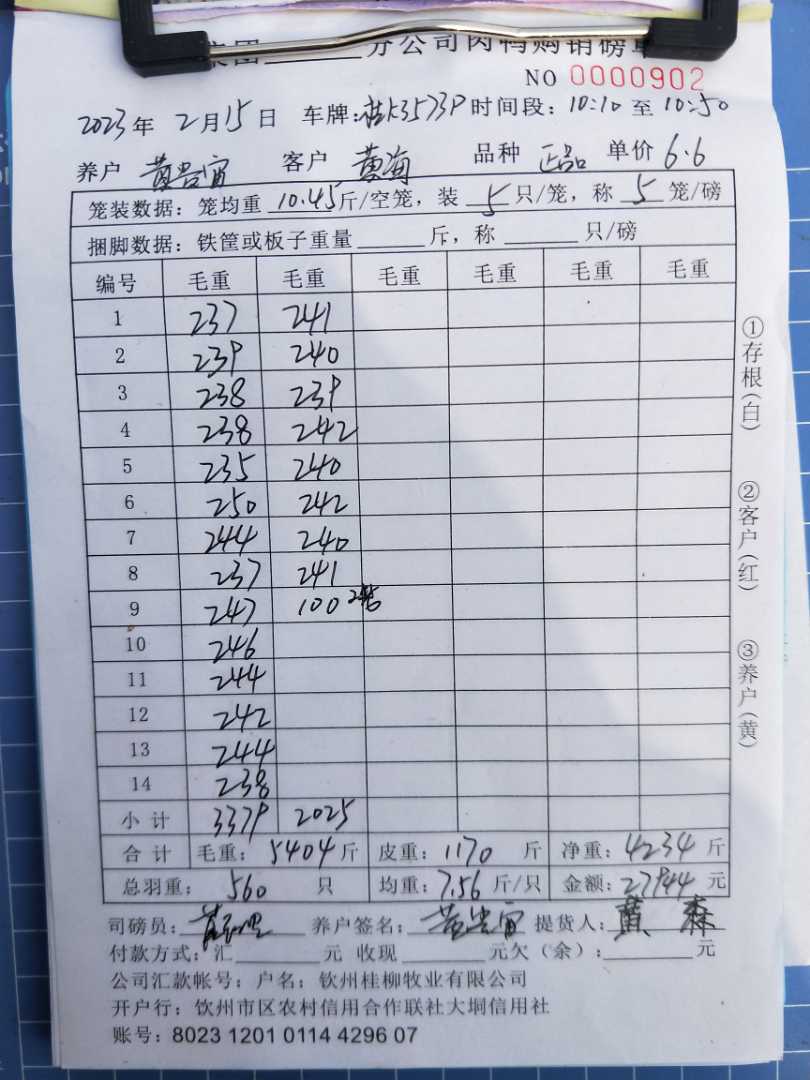 集团______分公司肉鸭购销磅单
NO 0000902
2023年 2月15日 车牌:桂K3573P 时间段:10:10 至 10:50
养户 黄贵富 客户 黄海 品种 正品 单价 6.6
笼装数据:笼均重 10.45 斤/空笼,装 5 只/笼,称 5 笼/磅
捆脚数据:铁筐或板子重量______斤,称______只/磅
编号 毛重 毛重 毛重 毛重 毛重 毛重
1 237 241
2 239 240
3 238 239
4 238 242
5 235 240
6 250 242
7 244 240
8 237 241
9 247 100 2笼
10 246
11 244
12 242
13 244
14 238
小计 3379 2025
合计 毛重: 5404 斤 皮重: 1170 斤 净重: 4234 斤
总羽重: 560 只 均重: 7.56 斤/只 金额: 27944 元
司磅员: 养户签名: 黄贵富 提货人: 黄森
付款方式:汇______元 收现______元欠(余):______元
公司汇款帐号:户名:钦州桂柳牧业有限公司
开户行:钦州市区农村信用合作联社大垌信用社
账号:8023 1201 0114 4296 07
①存根(白)
②客户(红)
③养户(黄)